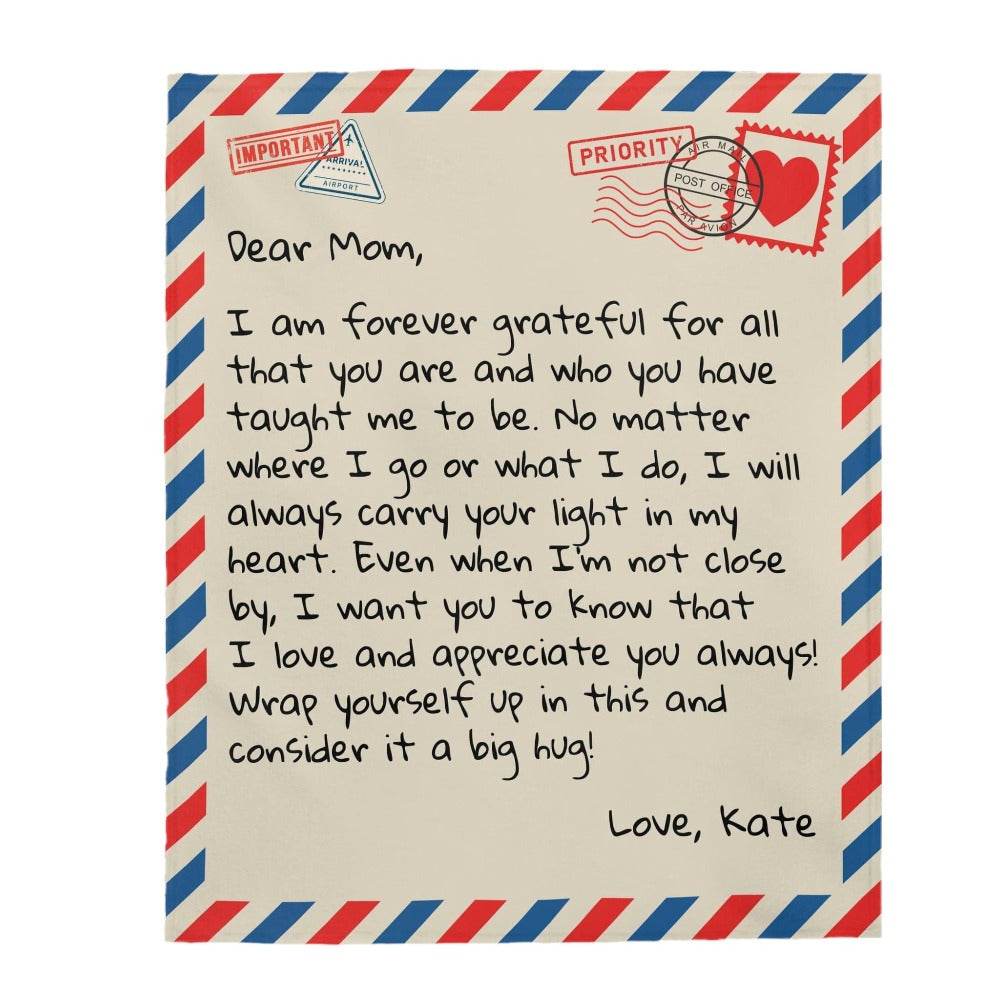 IMPORTANT
ARRIVAL
AIRPORT
PRIORITY
AIR MAIL
POST OFFICE
PAR AVION
Dear Mom,
I am forever grateful for all
that you are and who you have
taught me to be. No matter
where I go or what I do, I will
always carry your light in my
heart. Even when I'm not close
by, I want you to know that
I love and appreciate you always!
Wrap yourself up in this and
consider it a big hug!
Love, Kate